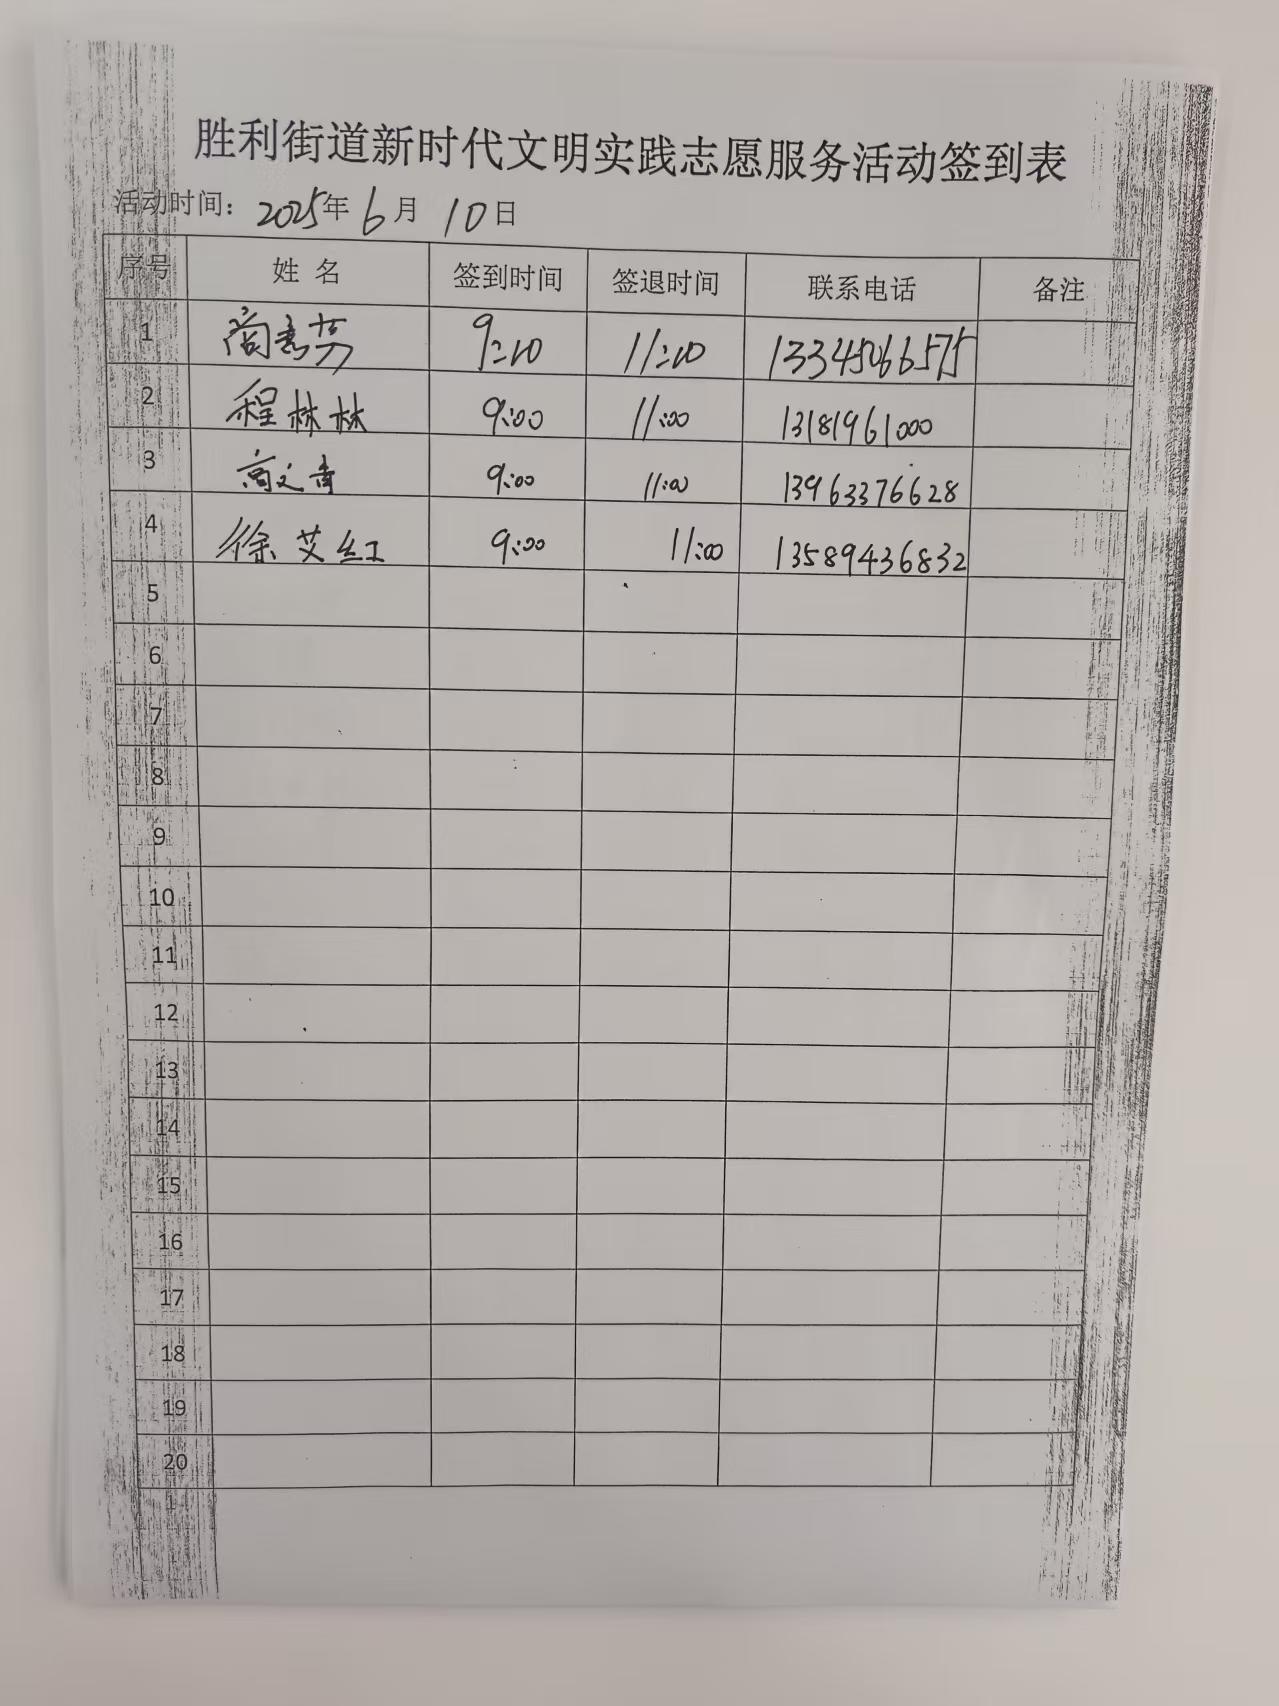 胜利街道新时代文明实践志愿服务活动签到表
活动时间：2025年6月10日
序号 姓 名 签到时间 签退时间 联系电话 备注
1 9:10 11:10 13345066575
2 程林林 9:00 11:00 13181961000
3 9:00 11:00 13963376628
4 徐艾红 9:00 11:00 13589436832
5
6
7
8
9
10
11
12
13
14
15
16
17
18
19
20